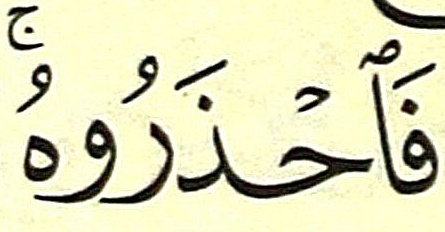 فَٱحْذَرُوهُ ۚ